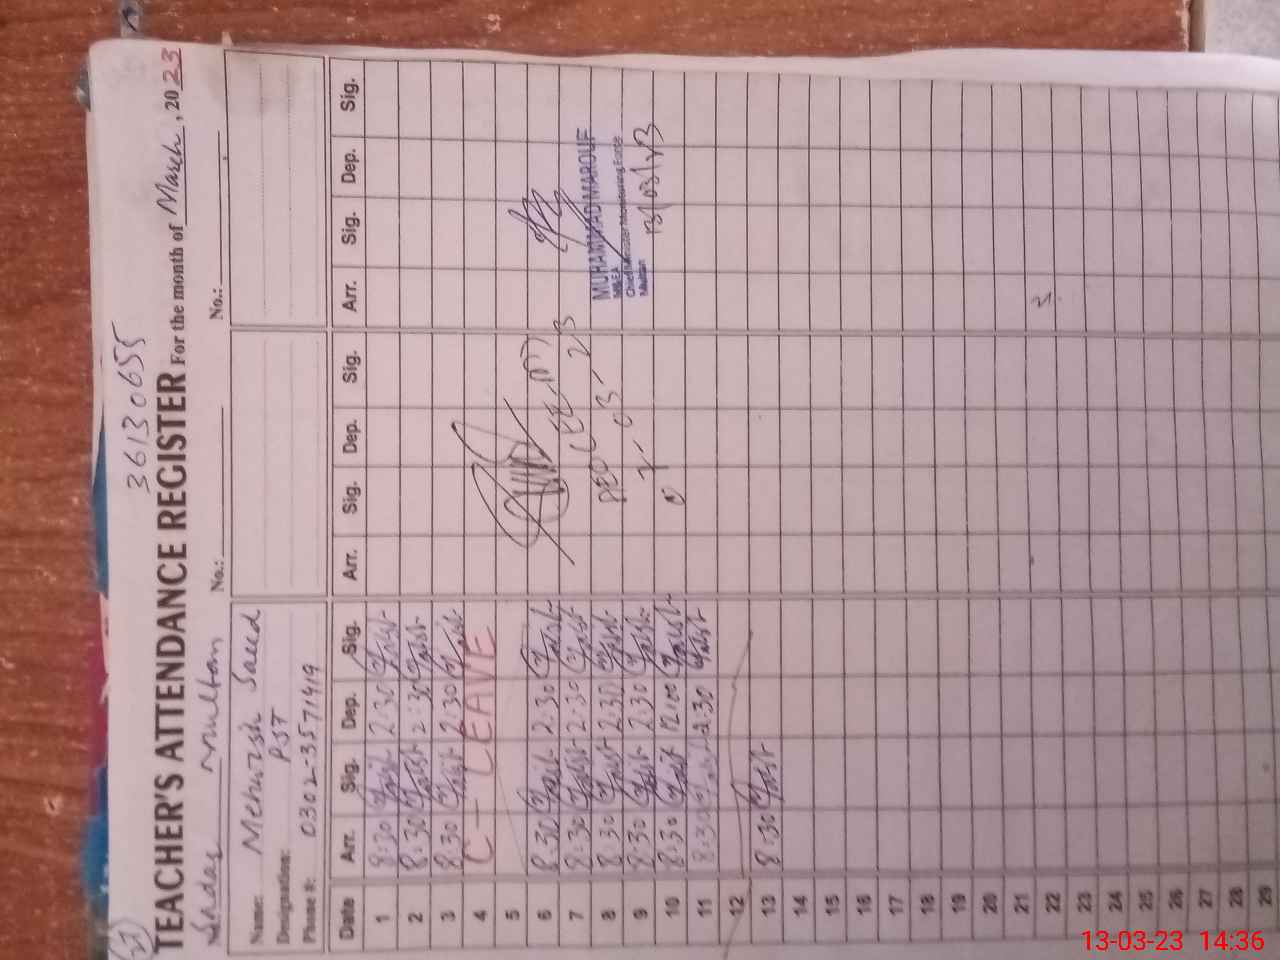 36130655
TEACHER'S ATTENDANCE REGISTER For the month of March, 2023
Sadar Multan No.: No.:
Name: Mehwish Saeed
Designation: PST
Phone #: 0302-3571419
Date Arr. Sig. Dep. Sig. Arr. Sig. Dep. Sig. Arr. Sig. Dep. Sig.
1 8:30 2:30
2 8:30 2:30
3 8:30 2:30
4 C-LEAVE
5
6 8:30 2:30
7 8:30 2:30
8 8:30 2:30
9 8:30 2:30
10 8:30 12:00
11 8:30 2:30
12
13 8:30
14
15
16
17
18
19
20
21
22
23
24
25
26
27
28
29
7-03-23
MUHAMMAD MAROUF
MEA
Chief Minister Monitoring Force
Multan
13/03/23
13-03-23 14:36